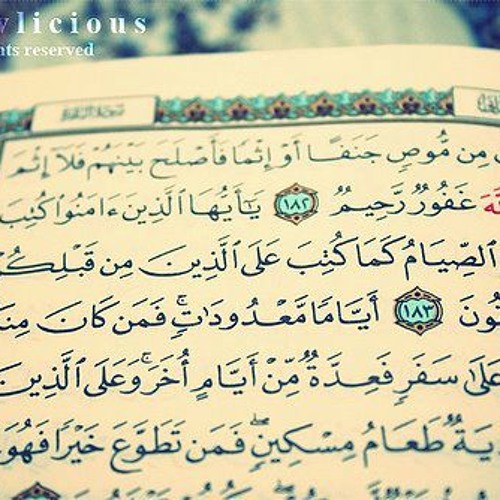 licious
nts reserved
سورة البقرة
مِن مُّوصٍ جَنَفًا أَوْ إِثْمًا فَأَصْلَحَ بَيْنَهُمْ فَلَآ إِثْمَ
غَفُورٌ رَّحِيمٌ ١٨٢ يَٰٓأَيُّهَا ٱلَّذِينَ ءَامَنُوا۟ كُتِبَ
ٱلصِّيَامُ كَمَا كُتِبَ عَلَى ٱلَّذِينَ مِن قَبْلِكُ
ونَ ١٨٣ أَيَّامًا مَّعْدُودَٰتٍۚ فَمَن كَانَ مِن
عَلَىٰ سَفَرٍ فَعِدَّةٌ مِّنْ أَيَّامٍ أُخَرَۚ وَعَلَى ٱلَّذِينَ
دْيَةٌ طَعَامُ مِسْكِينٍۖ فَمَن تَطَوَّعَ خَيْرًا فَهُوَ